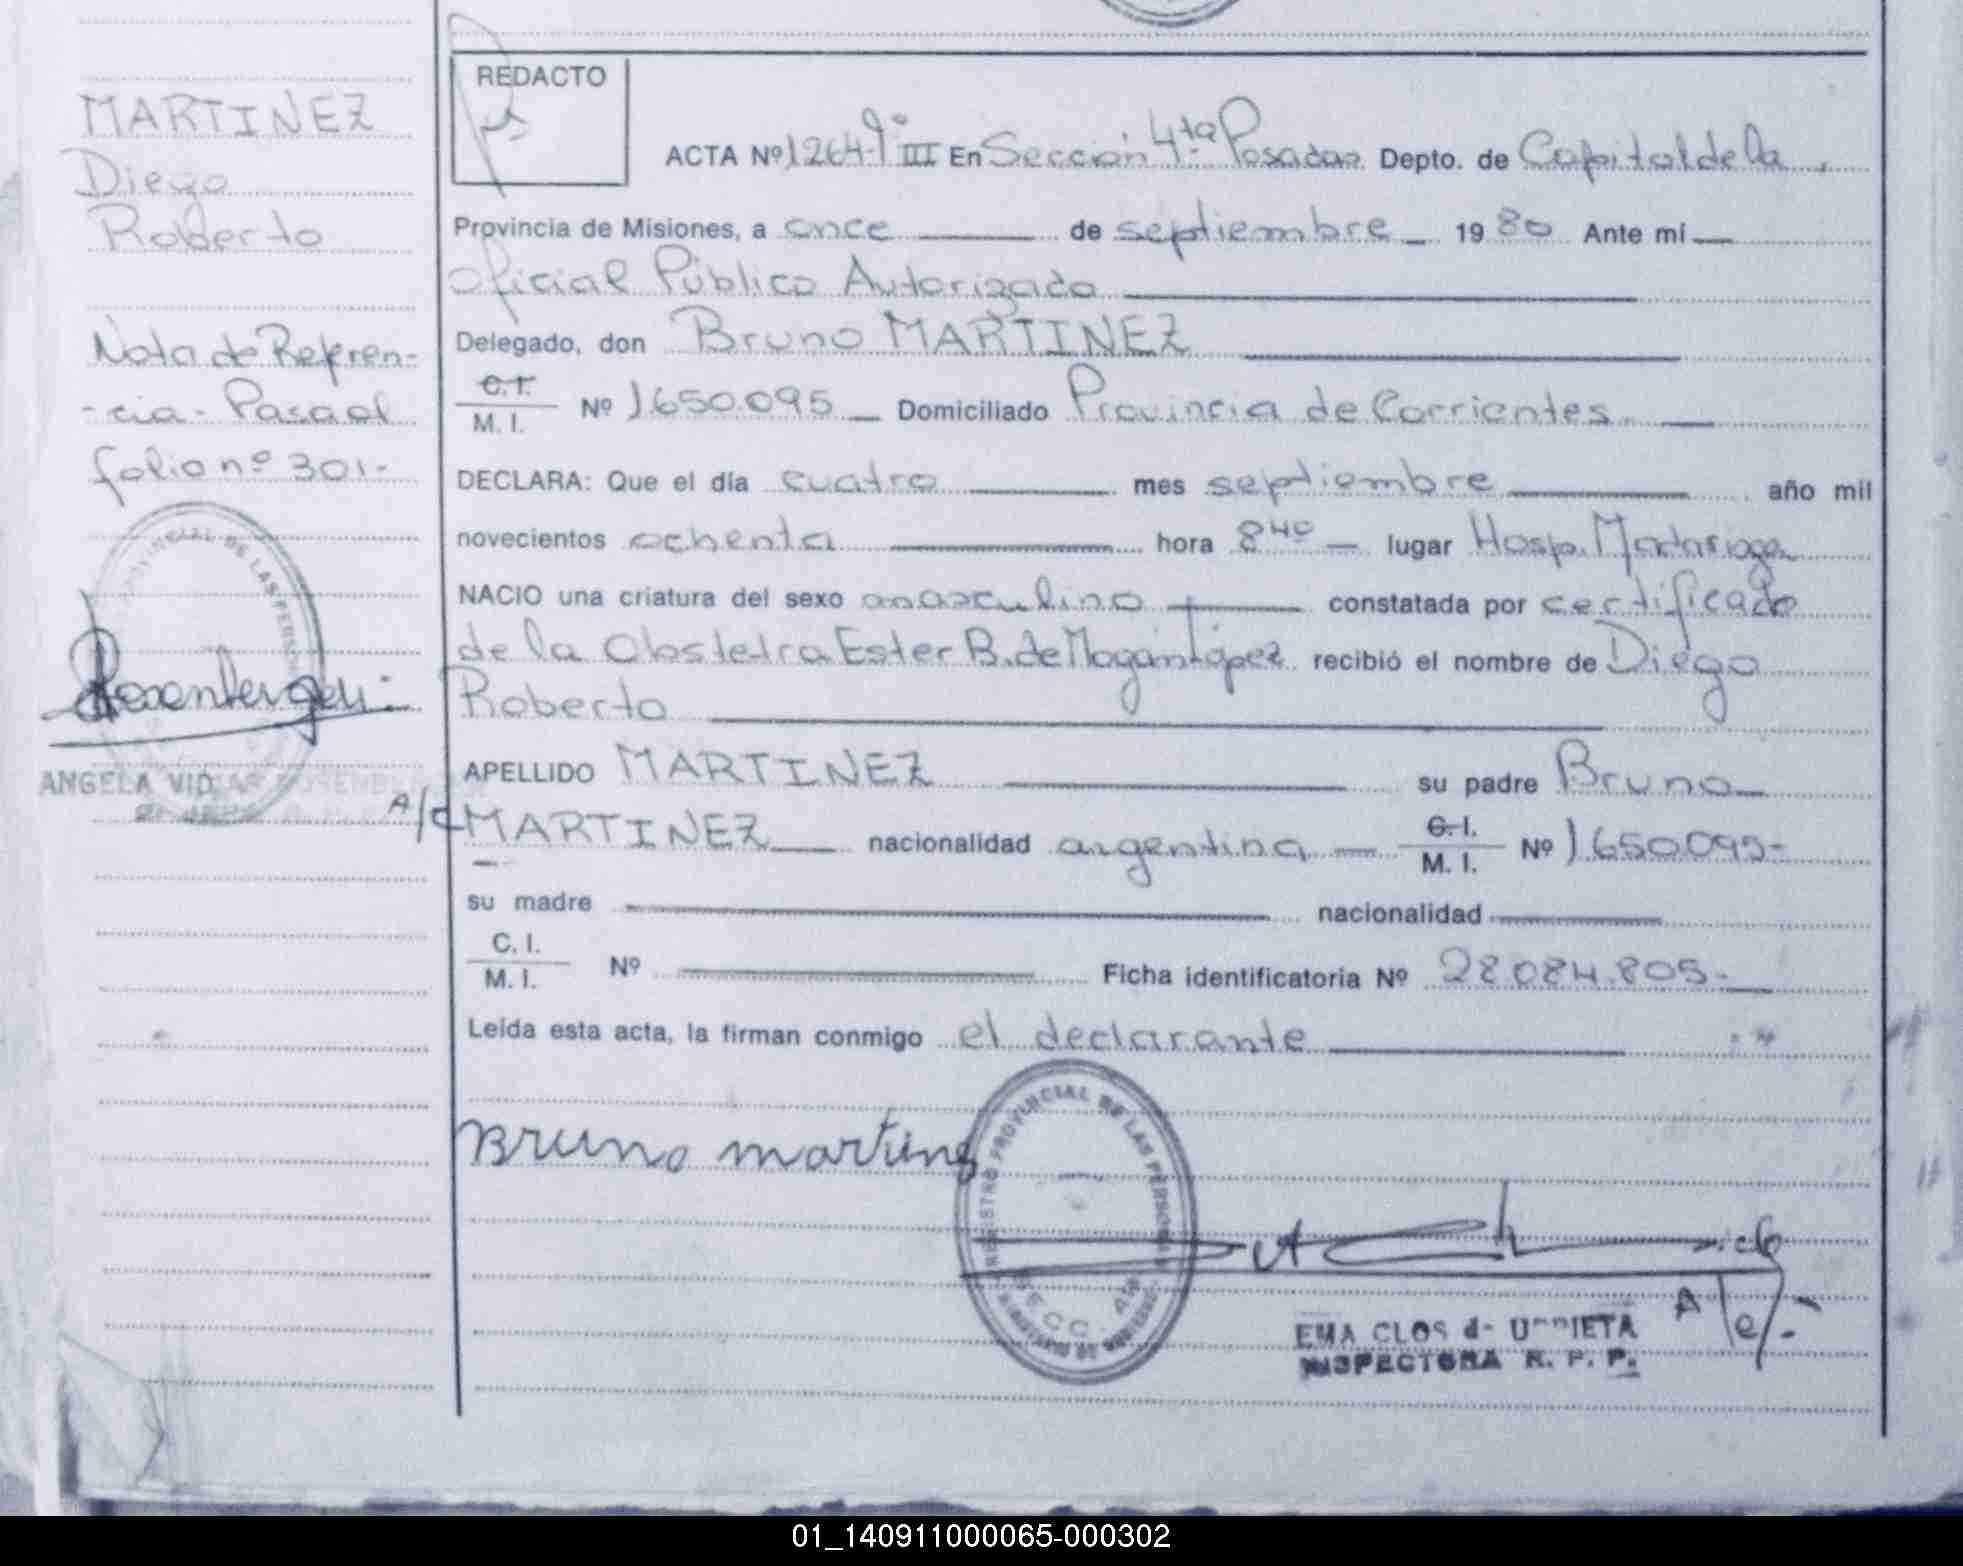 MARTINEZ
Diego
Roberto
Nota de Referen-
-cia- Pasa al
folio nº 301.-
PROVINCIAL DE LAS PERSONAS
ANGELA VIDAL ROSENBERGER
A/C
REDACTO
ACTA Nº 1264 Tº III En Sección 4ta Posadas Depto. de Capital de la
Provincia de Misiones, a once de septiembre 1980 Ante mí
Oficial Público Autorizado
Delegado, don Bruno MARTINEZ
C.I.
M. I. Nº 1.650.095 Domiciliado Provincia de Corrientes
DECLARA: Que el día cuatro mes septiembre año mil
novecientos ochenta hora 8 40 lugar Hosp. Madariaga
NACIO una criatura del sexo masculino constatada por certificado
de la Obstetra Ester B. de recibió el nombre de Diego
Roberto
APELLIDO MARTINEZ su padre Bruno
MARTINEZ nacionalidad argentina C.I.
M. I. Nº 1.650.095-
su madre nacionalidad
C. I.
M. I. Nº Ficha identificatoria Nº 28.084.805.-
Leída esta acta, la firman conmigo el declarante
Bruno martinez
REGISTRO PROVINCIAL DE LAS PERSONAS
SECC. 4ta
EMA CLOS de URRIETA
INSPECTORA R. P. P.
01_140911000065-000302